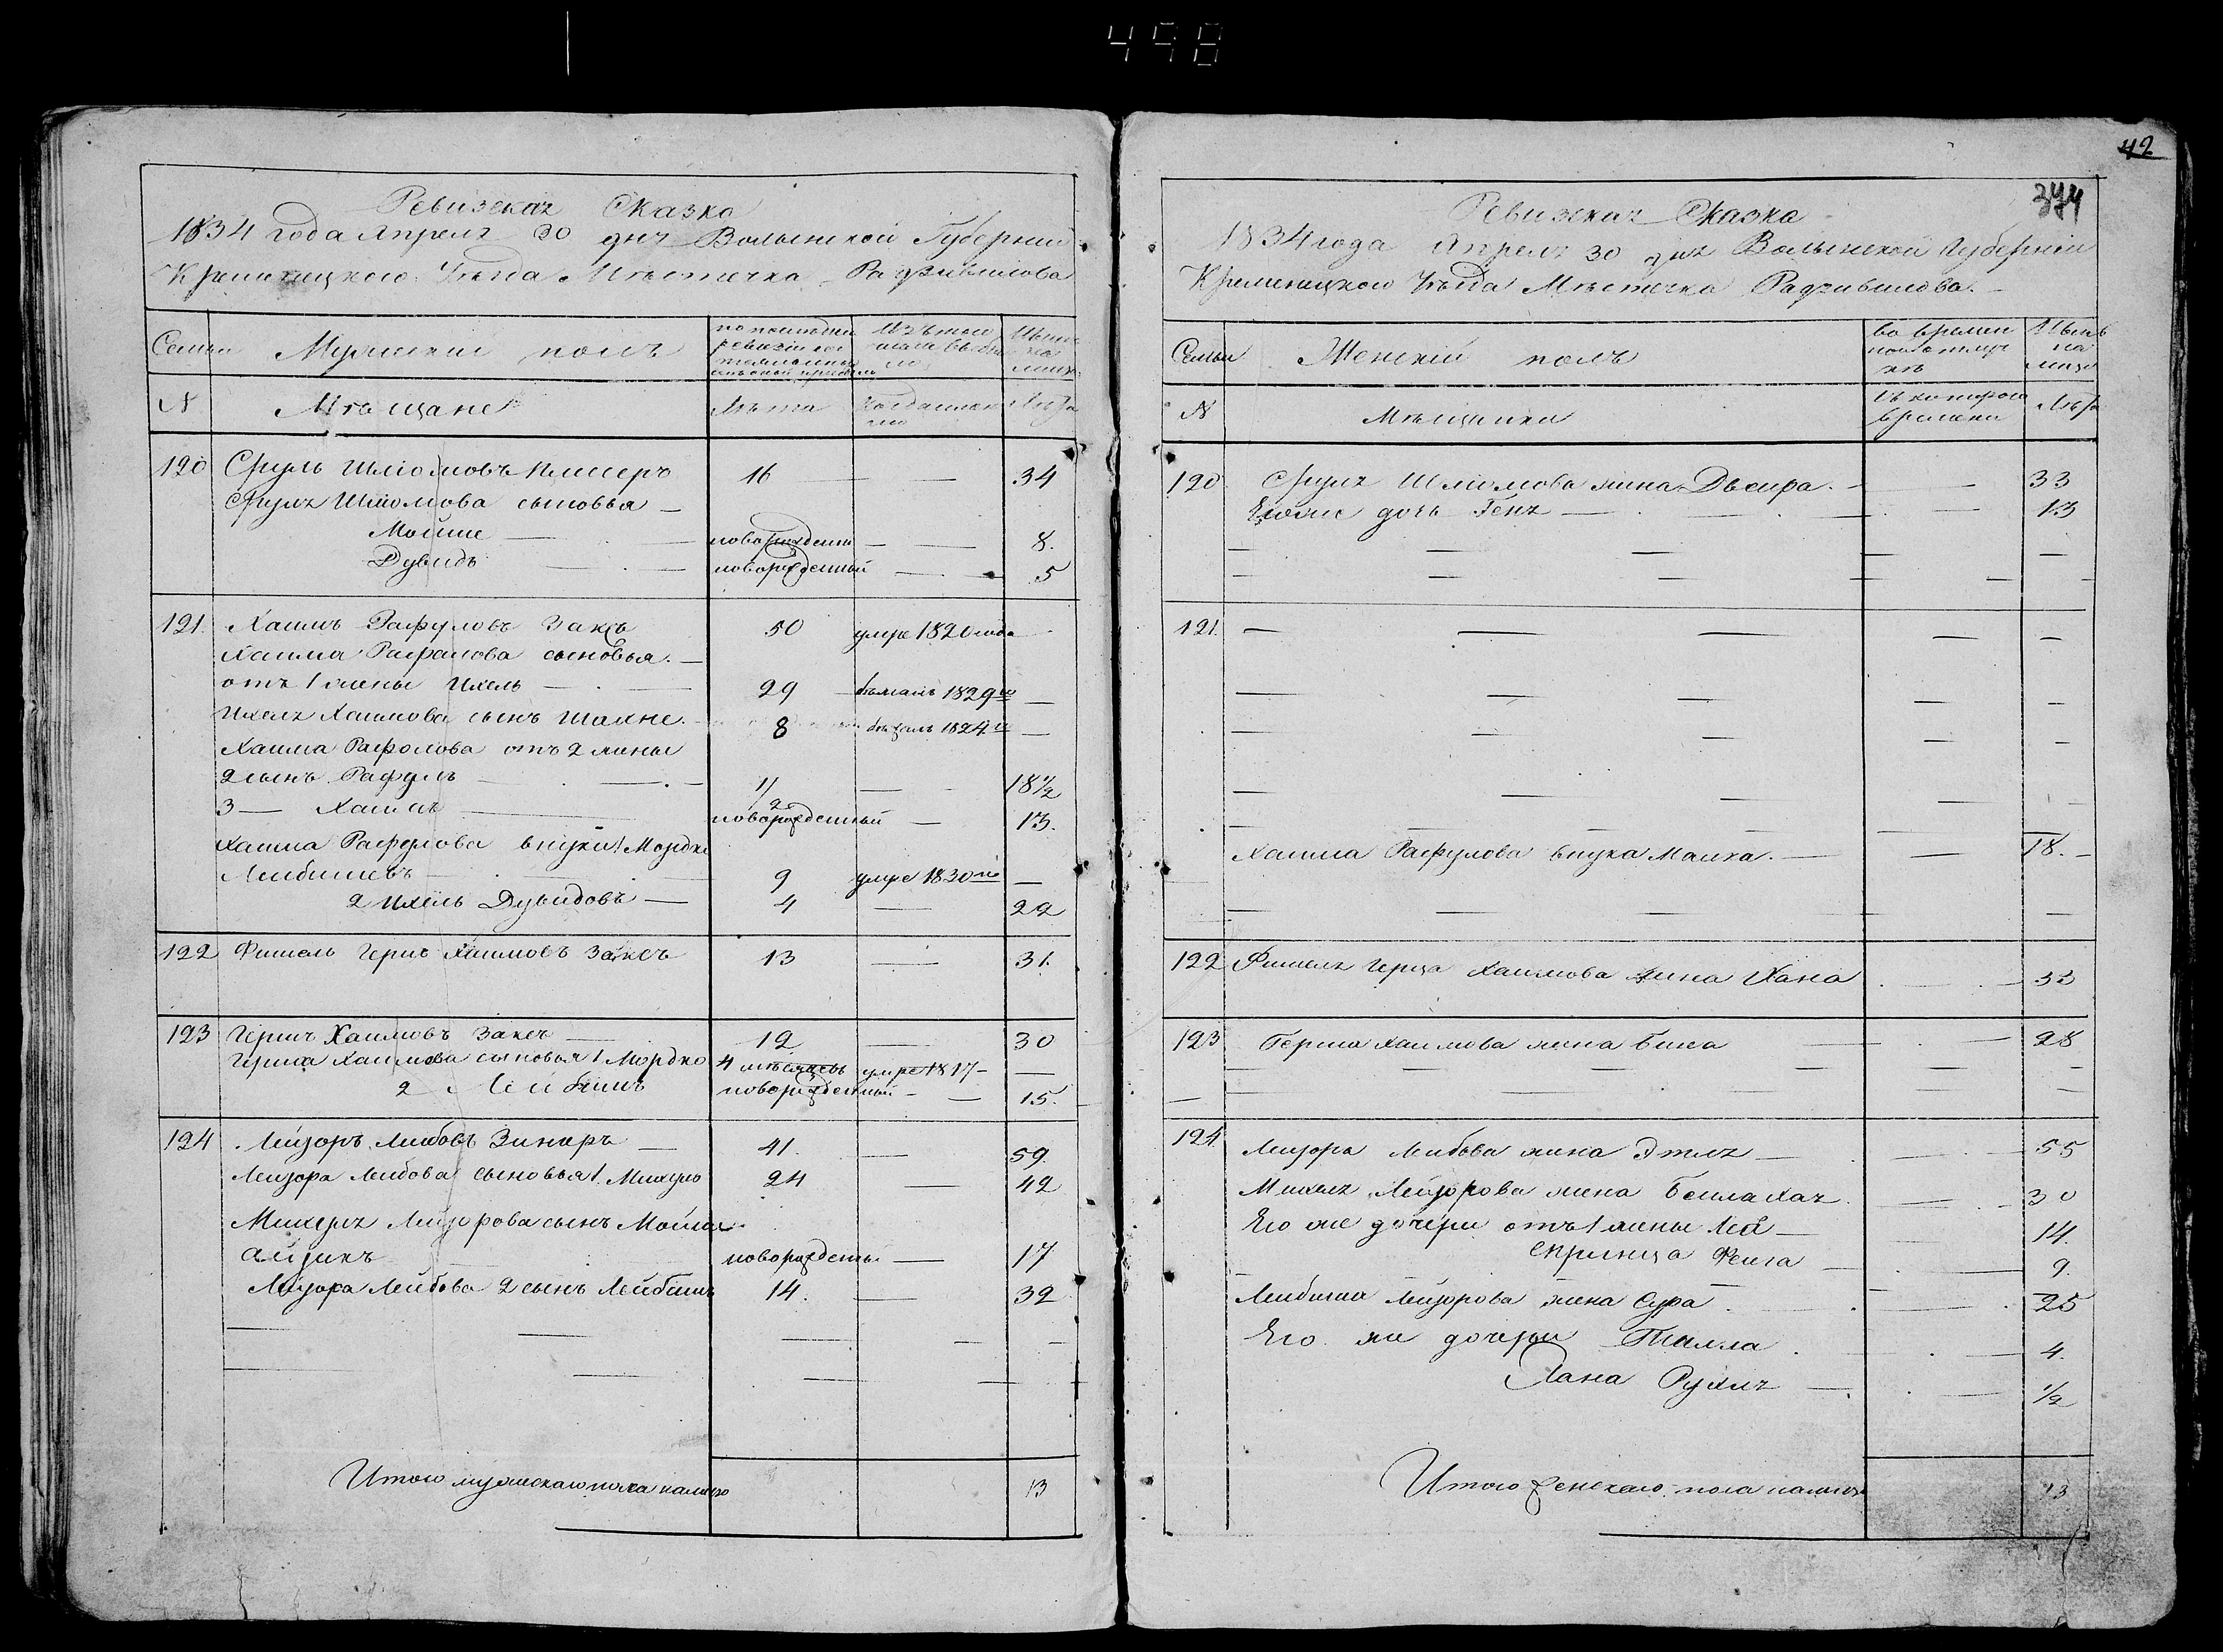 498
Ревизская Сказка
1834 года Апреля 30 дня Волынской Губернии
Кременецкого Уѣзда Мѣстечка Радзивилова
Семьи Мужеский полъ по последней ревизии Изъ того числа выбыло Нынѣ на лицо
N Мѣщане Лѣта Когда именно Лѣта
120 Сруль Шліомовъ 16 — — 34
Сруля Шліомова сыновья —
Мойше — новорожденный — — 8.
Дувидъ — новорожденный — — 5
121. Хаимъ Рафуловъ Заксъ 50 умре 1820 года
Хаима Рафалова сыновья. —
отъ 1 жены Ихель — 29 бѣжалъ 1829го —
Ихеля Хаимова сынъ Шахне. 8 бѣжалъ 1824го —
Хаима Рафолова отъ 2 жены
2 сынъ Рафулъ — 1/2 — 18 1/2
3 — Хаимъ новорожденный — 13.
Хаима Рафулова внуки 1 Мордко
Лейбишевъ — 9 умре 1830го —
2 Ихель Дувидовъ — 4 — 22
122 Фишель Герцъ Хаимовъ Заксъ 13 — 31.
123 Гершъ Хаимовъ Заксъ — 12 — 30
Герша Хаимова сыновья 1 Мордко 4 мѣсяцевъ умре 1817 — —
2 Лейбишъ новорожденный — — 15.
124 Лейзоръ Лейбовъ Зингеръ — 41. — 59.
Лейзора Лейбова сыновья 1. Михуль 24 — 42
Михеля Лейзорова сынъ Мойша
Айзикъ новорожденный — 17
Лейзора Лейбова 2 сынъ Лейбишъ 14. — 32
Итого мужескаго пола налицо 13
42
374
Ревизская Сказка
1834 года Апреля 30 дня Волынской Губерніи
Кременецкого Уѣзда Мѣстечка Радзивилова. —
Семьи Женскій полъ во временной отлучкѣ Нынѣ на лицо
N Мѣщанки Съ которого времени Лѣта
120 Сруля Шлиомова жена Двейра. — — 33
Его же дочь Геня — — 13
121. — — — —
Хаима Рафулова внука Малка. — — 18. —
122 Фишеля Герца Хаимова жена Хана — 33
123 Герша Хаимова жена Бина — 28
124. Лейзора Лейбова жена Этля — — 55
Михеля Лейзорова жена Бейла Хая — 30
Его же дочери отъ 1 жены Лея — 14.
Спринца Фейга — 9.
Лейбиша Лейзорова жена Сура — 25
Его же дочери — 4.
Хана Рухля — 1/2
Итого женскаго пола налицо 13